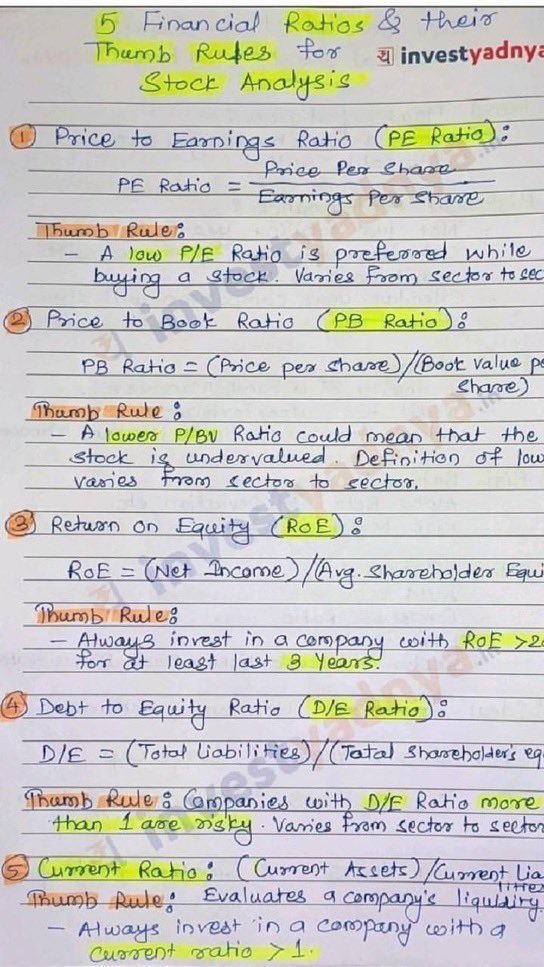 5 Financial Ratios & their
Thumb Rules for
य investyadnya
Stock Analysis
1 Price to Earnings Ratio (PE Ratio):
PE Ratio = Price Per Share
Earnings Per Share
Thumb Rule:
- A low P/E Ratio is preferred while
buying a stock. Varies from sector to sec
2 Price to Book Ratio (PB Ratio):
PB Ratio = (Price per share)/(Book value pe
share)
Thumb Rule:
- A lower P/BV Ratio could mean that the
stock is undervalued. Definition of low
varies from sector to sector.
3 Return on Equity (RoE):
RoE = (Net Income)/(Avg. Shareholder Equi
Thumb Rule:
- Always invest in a company with RoE >20
for at least last 3 Years.
4 Debt to Equity Ratio (D/E Ratio):
D/E = (Total Liabilities)/(Total Shareholder's eq
Thumb Rule: Companies with D/E Ratio more
than 1 are risky. Varies from sector to sector
5 Current Ratio: (Current Assets)/Current Lia
lities
Thumb Rule: Evaluates a company's liquidity.
- Always invest in a company with a
current ratio > 1.
investyadnya.in
investyadnya.in
investyadnya.in